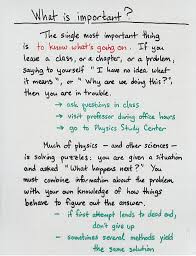 What is important?
The single most important thing
is to know what's going on. If you
leave a class, or a chapter, or a problem,
saying to yourself "I have no idea what
it means", or "Why are we doing this?",
then you are in trouble.
→ ask questions in class
→ visit professor during office hours
→ go to Physics Study Center
Much of physics - and other sciences -
is solving puzzles: you are given a situation
and asked "What happens next?" You
must combine information about the problem
with your own knowledge of how things
behave to figure out the answer.
- if first attempt leads to dead end,
don't give up
- sometimes several methods yield
the same solution